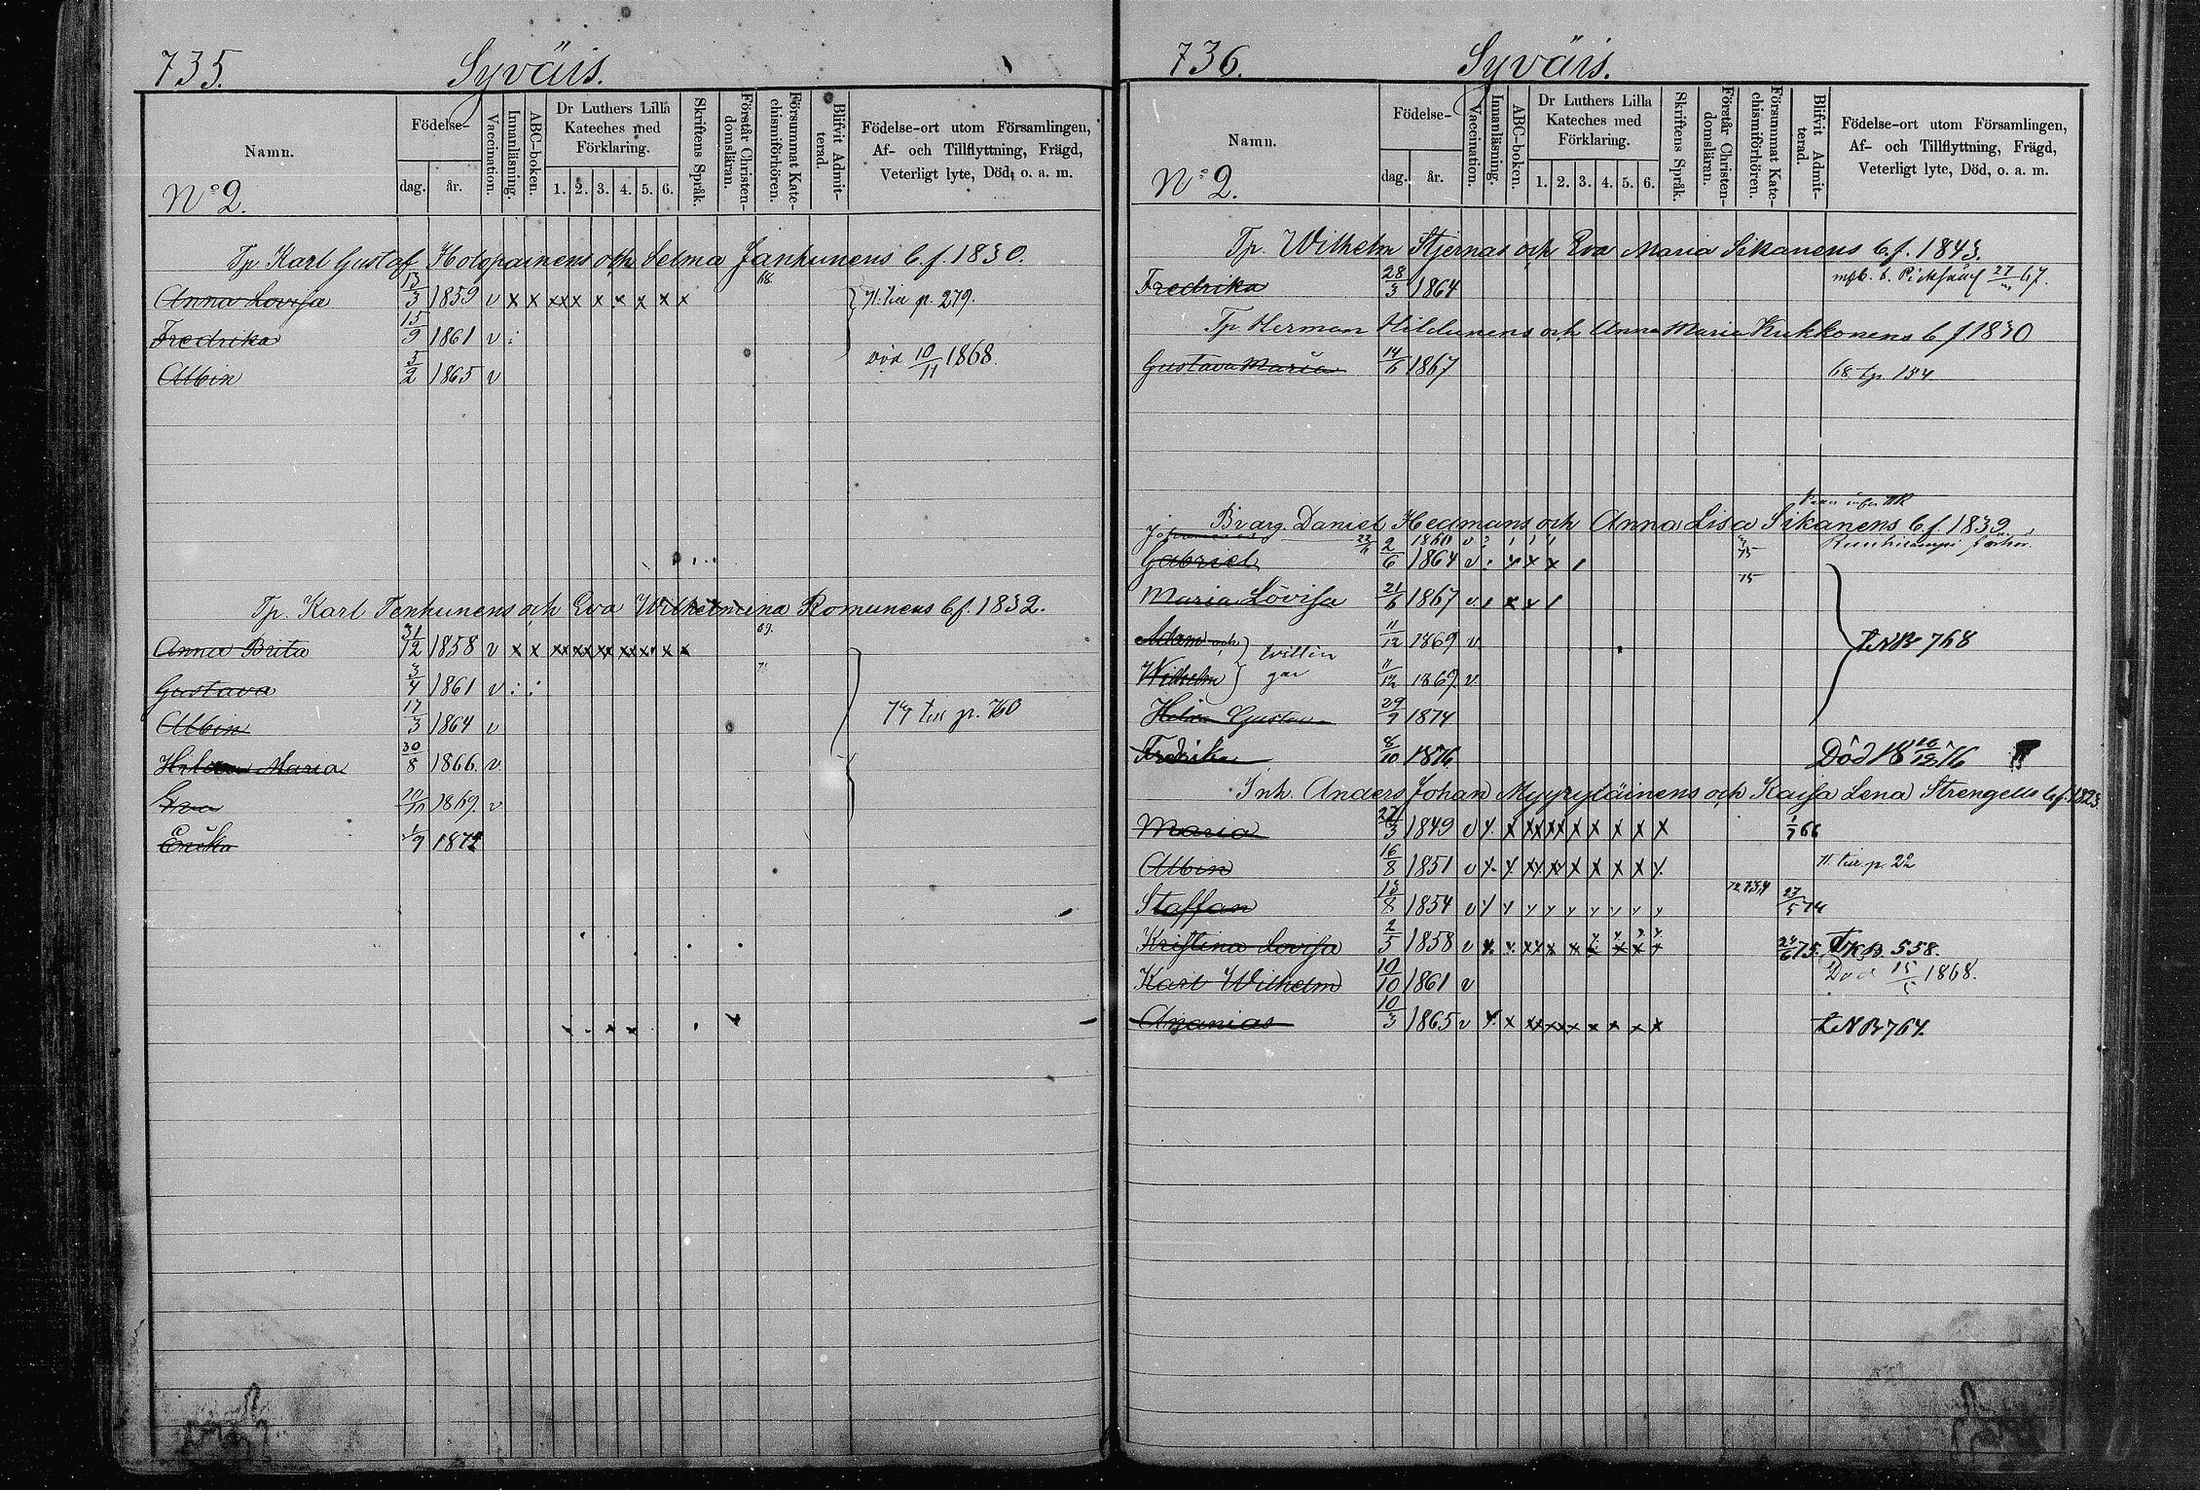 735. Syväis.
Namn.
Födelse-
dag. år.
Vaccination.
Innanläsning.
ABC-boken.
Dr Luthers Lilla
Kateches med
Förklaring.
1. 2. 3. 4. 5. 6.
Skriftens Språk.
Förstår Christen-
domsläran.
Försummat Kate-
chismiförhören.
Blifvit Admit-
terad.
Födelse-ort utom Församlingen,
Af- och Tillflyttning, Frägd,
Veterligt lyte, Död, o. a. m.
No 2.
Tp Karl Gustaf Holopainens och Selma Janhunens b. f. 1830.
Anna Lovisa 13/3 1859 v x x xx x x x x x x 68. till p. 279.
Fredrika 15/9 1861 v :
Albin 5/2 1865 v död 10/11 1868.
Tp. Karl Tenhunens och Eva Wilhelmina Romunens b f. 1832.
Anna Brita 31/12 1858 v x x xx xx xx xx x x x 69.
Gustava 3/4 1861 v : : 71
Albin 17/3 1864 v 74 till p. 760
Helena Maria 30/8 1866. v.
Eva 1869. v
Erika 1/9 1872
736. Syväis.
Namn.
Födelse-
dag. år.
Vaccination.
Innanläsning.
ABC-boken.
Dr Luthers Lilla
Kateches med
Förklaring.
1. 2. 3. 4. 5. 6.
Skriftens Språk.
Förstår Christen-
domsläran.
Försummat Kate-
chismiförhören.
Blifvit Admit-
terad.
Födelse-ort utom Församlingen,
Af- och Tillflyttning, Frägd,
Veterligt lyte, Död, o. a. m.
No 2.
Tp. Wilhelm Stjernas och Eva Maria Sikanens b. f. 1843.
Fredrika 28/3 1864 67.
Tp Herman Hildunens och Anna Maria Kukkonens b f 1830
Gustava Maria 14/6 1867 68 tp 154
Brarg. Daniel Hedmans och Anna Lisa Sikanens b. f. 1839
Johannes 22/11 1860 v
Gabriel 2/6 1864 v : x x x / 75
Maria Lovisa 21/6 1867 v / x x / 75
Adam och 11/12 1869 v tvillin
Wilhelm 11/12 1869. v gar LNB 768
Gustava 29/9 1874
Fredrika 8/10 1876 Död 18 76
Inh. Anders Johan Myyryläinens och Kaisa Lena Strengells b. f. 1823.
Maria 27/3 1849 v x. x xx xx x x x x x 1/7 66
Albin 16/8 1851 v x. x. xx x x x x x x 71 till p. 22
Staffan 13/8 1854 v x x x x x x x x x 72 73 74 27/5 74
Kristina Lovisa 2/5 1858 v x. x. xx x x x x x x 24/6 75. LKB. 558.
Karl Wilhelm 10/10 1861 v Död 15/5 1868.
Ananias 10/3 1865 v x. x xx xx x x x x x LNB 764.